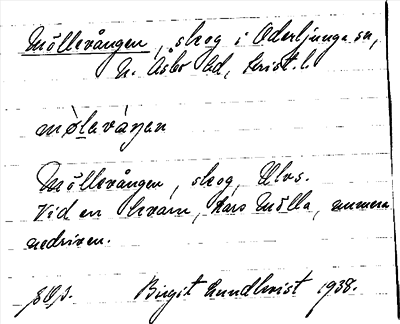 Möllevången, skog i Oderljunga sn,
N. Åsbo hd, Krist. l.
mø̀lavàŋan
Möllevången, skog, Ulvs.
Vid en kvarn, Kars Mölla, numera
nedriven.
Birgit Lundkvist 1938.